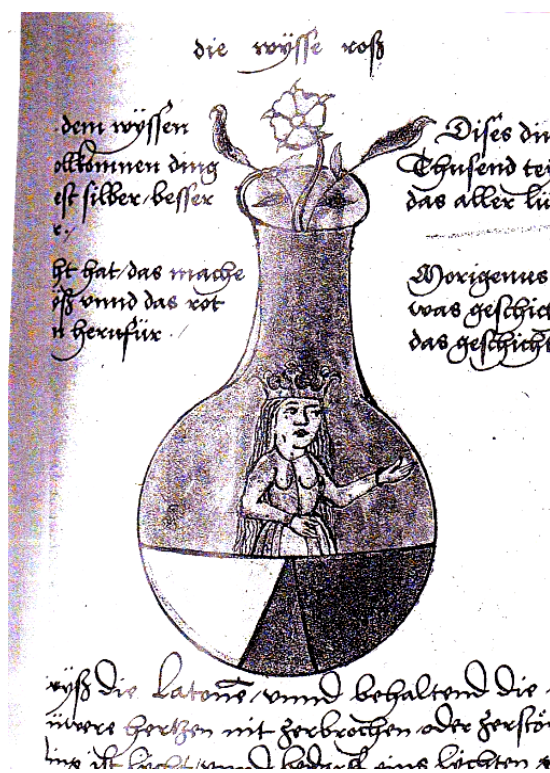 die wÿsse roß
dem wÿssen
olkomnen ding
est silber / besser
r./
ht hat / das mache
ÿß vnnd das rot
n herufür./
Dises din
Thusend te
das aller lü
Morigenus
was geschich
das geschicht
wÿß die Latonē / vnnd behaltend die
üwere hertzen nit zerbrochen oder zerstö
ing ist lücht / vnnd bedarff eins lüchten